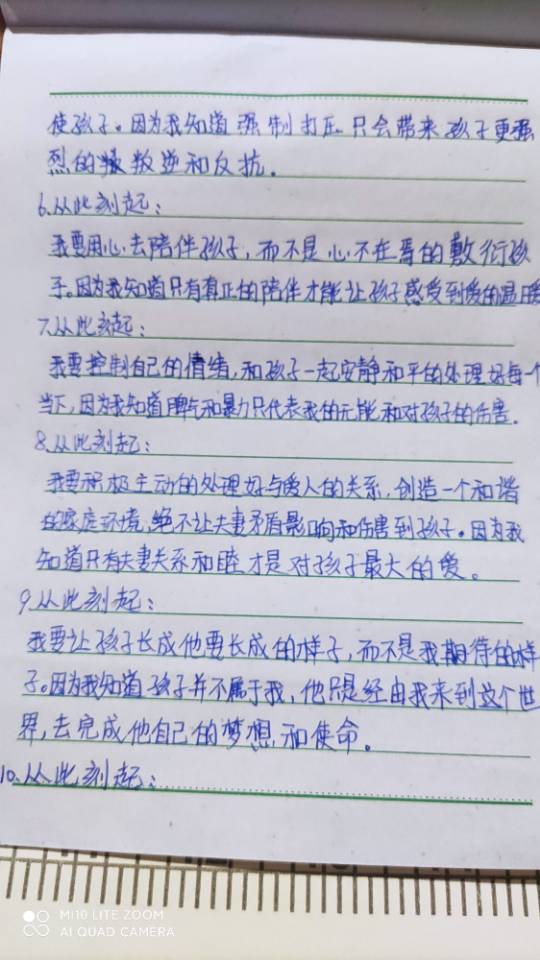 使孩子。因为我知道强制打压只会带来孩子更强
烈的叛逆和反抗。
6.从此刻起：
我要用心去陪伴孩子，而不是心不在焉的敷衍孩
子。因为我知道只有真正的陪伴才能让孩子感受到爱的温暖
7.从此刻起：
我要控制自己的情绪，和孩子一起安静和平的处理好每个
当下，因为我知道脾气和暴力只代表我的无能和对孩子的伤害。
8.从此刻起：
我要积极主动的处理好与爱人的关系，创造一个和谐
的家庭环境，绝不让夫妻矛盾影响和伤害到孩子。因为我
知道只有夫妻关系和睦才是对孩子最大的爱。
9.从此刻起：
我要让孩子长成他要长成的样子，而不是我期待的样
子。因为我知道孩子并不属于我，他只是经由我来到这个世
界，去完成他自己的梦想和使命。
10.从此刻起：
MI 10 LITE ZOOM
AI QUAD CAMERA